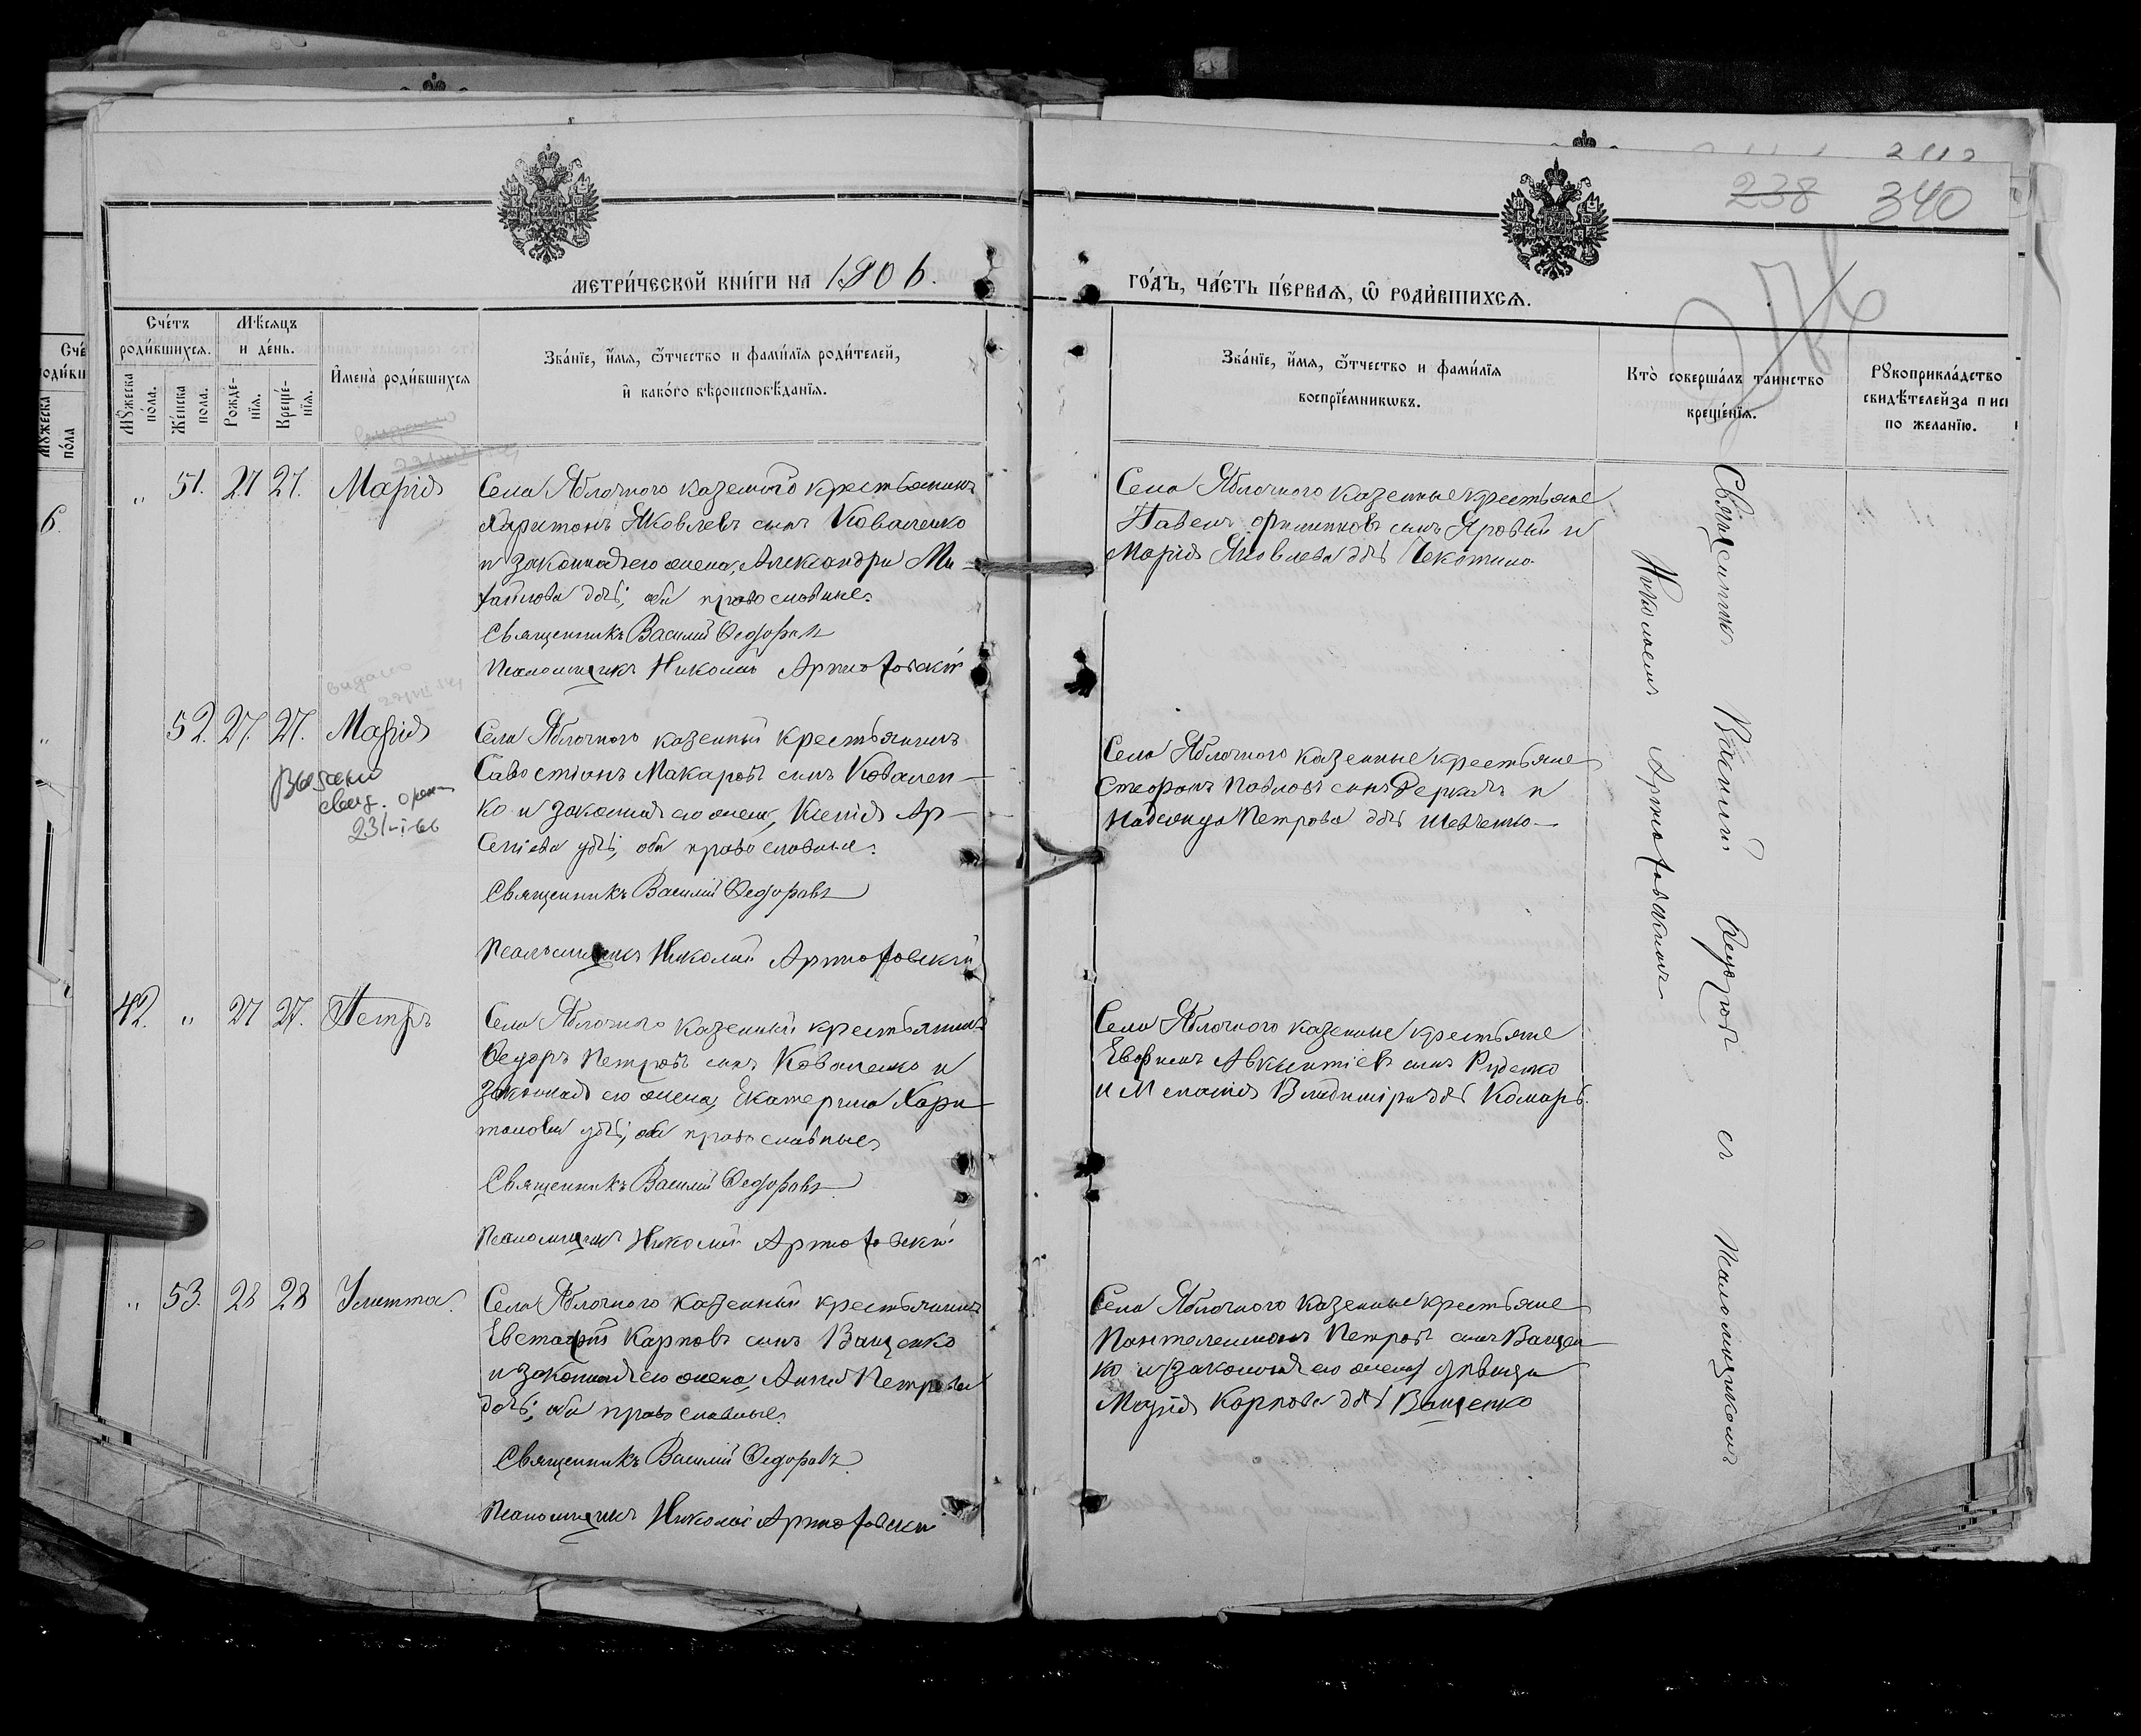 238 340
МЕТРИ́ЧЕСКОЙ КНИ́ГИ НА 1906.
ГО́ДЪ, ЧА́СТЬ ПЕ́РВАѦ, Ѿ РОДИ́ВШИХСѦ.
Сче́тъ
роди́вшихся.
Мѣ́сяцъ
и де́нь.
Мꙋжеска
по́ла.
Же́нска
пола.
Рожде́-
нїя.
Креще́-
нїя.
И҆мена̀ роди́вшихся
Зва́нїе, и҆́мя, ѻ҆́тчество и фами́лїя роди́телей,
и҆ како́го вѣроисповѣ́данїя.
Зва́нїе, и҆́мя, ѻ҆́тчество и фами́лїя
воспрїе́мникѡвъ.
Кто̀ соверша́лъ таинство
креще́нїя.
Рꙋкоприкла́дство
свидѣ́телей за писи
по жела́нїю.
„ 51. 27 27. Марія
Села Яблочного казенного крестьянинъ
Харитонъ Яковлевъ сынъ Коваленко
и законная его жена, Александра Ми-
хайлова дчь; оба православные.
Священникъ Василій Ѳедоровъ
Псаломщикъ Николай Артюховскій
Села Яблочного казенные крестьяне
Павелъ Филиповъ сынъ Яровый и
Марія Яковлева дчь Чекотина
52. 27. 27. Марія
Выдано
свид.
23/-I-66
Села Яблочного казенный крестьянинъ
Савостіанъ Макаровъ сынъ Ковален-
ко и законная его жена, Ксенія Ар-
сеніева дчь; оба православные.
Священникъ Василій Ѳедоровъ
Псаломщикъ Николай Артюховскій
Села Яблочного казенные крестьяне
Стефанъ Павловъ сынъ Деркачъ и
Надежда Петрова дчь Шевченко
42. „ 27 27. Петръ
Села Яблочного казенный крестьянинъ
Ѳедоръ Петровъ сынъ Коваленко и
законная его жена, Екатерина Хари-
тонова дчь; оба православные
Священникъ Василій Ѳедоровъ
Псаломщикъ Николай Артюховскій
Села Яблочного казенные крестьяне
сынъ Руденко
и Меланія Владиміра дчь Комарь.
„ 53. 28 28 Улитта.
Села Яблочного казенный крестьянинъ
Евстафій Карповъ сынъ Ващенко
и законная его жена, Анна Петрова
дочь; оба православные.
Священникъ Василій Ѳедоровъ
Псаломщикъ Николай Артюховскій
Села Яблочного казенные крестьяне
Пантелеимонъ Петровъ сынъ Ващен-
ко и дѣвица
Марія Карпова дчь Ващенко
Священникъ Василій Ѳедоровъ съ Псаломщикомъ
Николаемъ Артюховскимъ